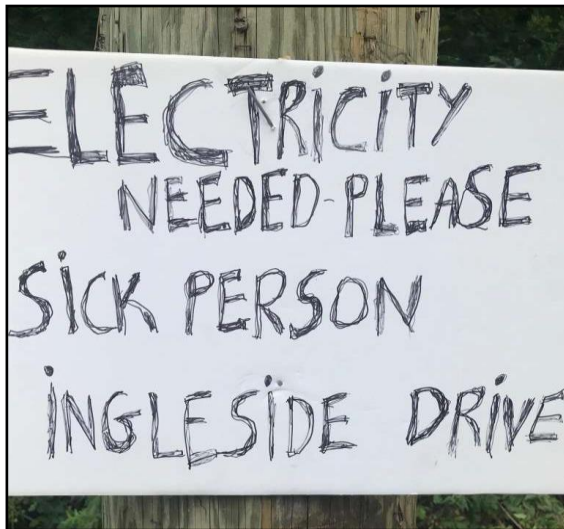 ELECTRiCiTY
NEEDED-PLEASE
SiCK PERSON
iNGLESiDE DRiVE